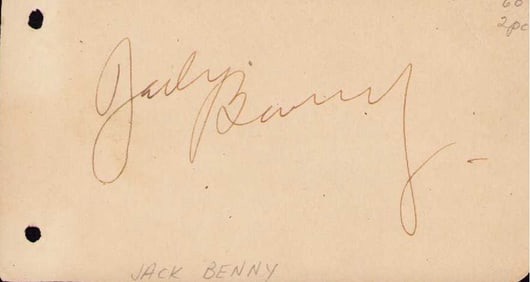 60
2pc
Jack Benny
JACK BENNY